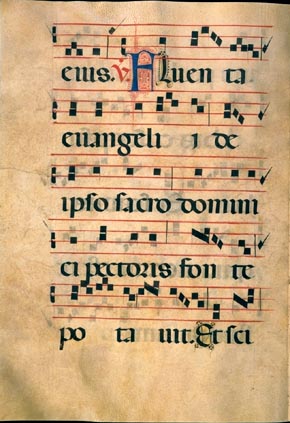 eius. ℣. Fluen ta
euangeli i de
ipso sacro domini
ci pectoris fon te
po ta uit. Et sci